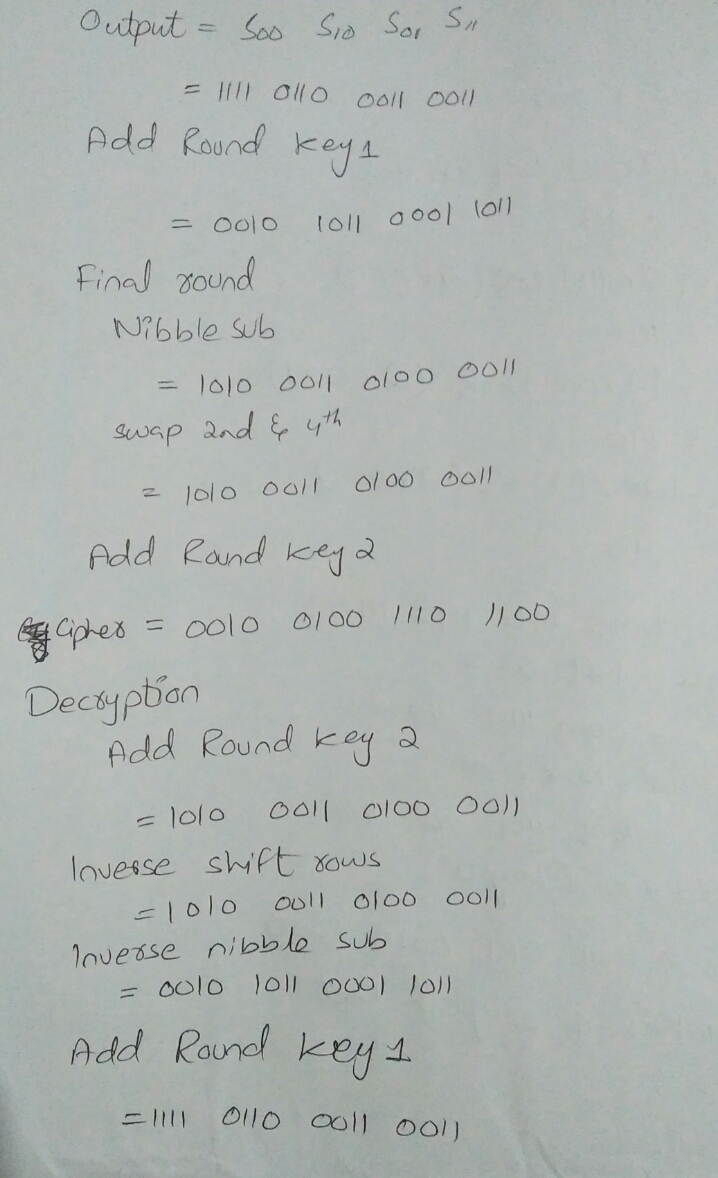 Output = S00 S10 S01 S11
= 1111 0110 0011 0011
Add Round key 1
= 0010 1011 0001 1011
Final round
Nibble sub
= 1010 0011 0100 0011
swap 2nd & 4th
= 1010 0011 0100 0011
Add Round key 2
Cipher = 0010 0100 1110 1100
Decryption
Add Round key 2
= 1010 0011 0100 0011
Inverse shift rows
= 1010 0011 0100 0011
Inverse nibble sub
= 0010 1011 0001 1011
Add Round key 1
= 1111 0110 0011 0011